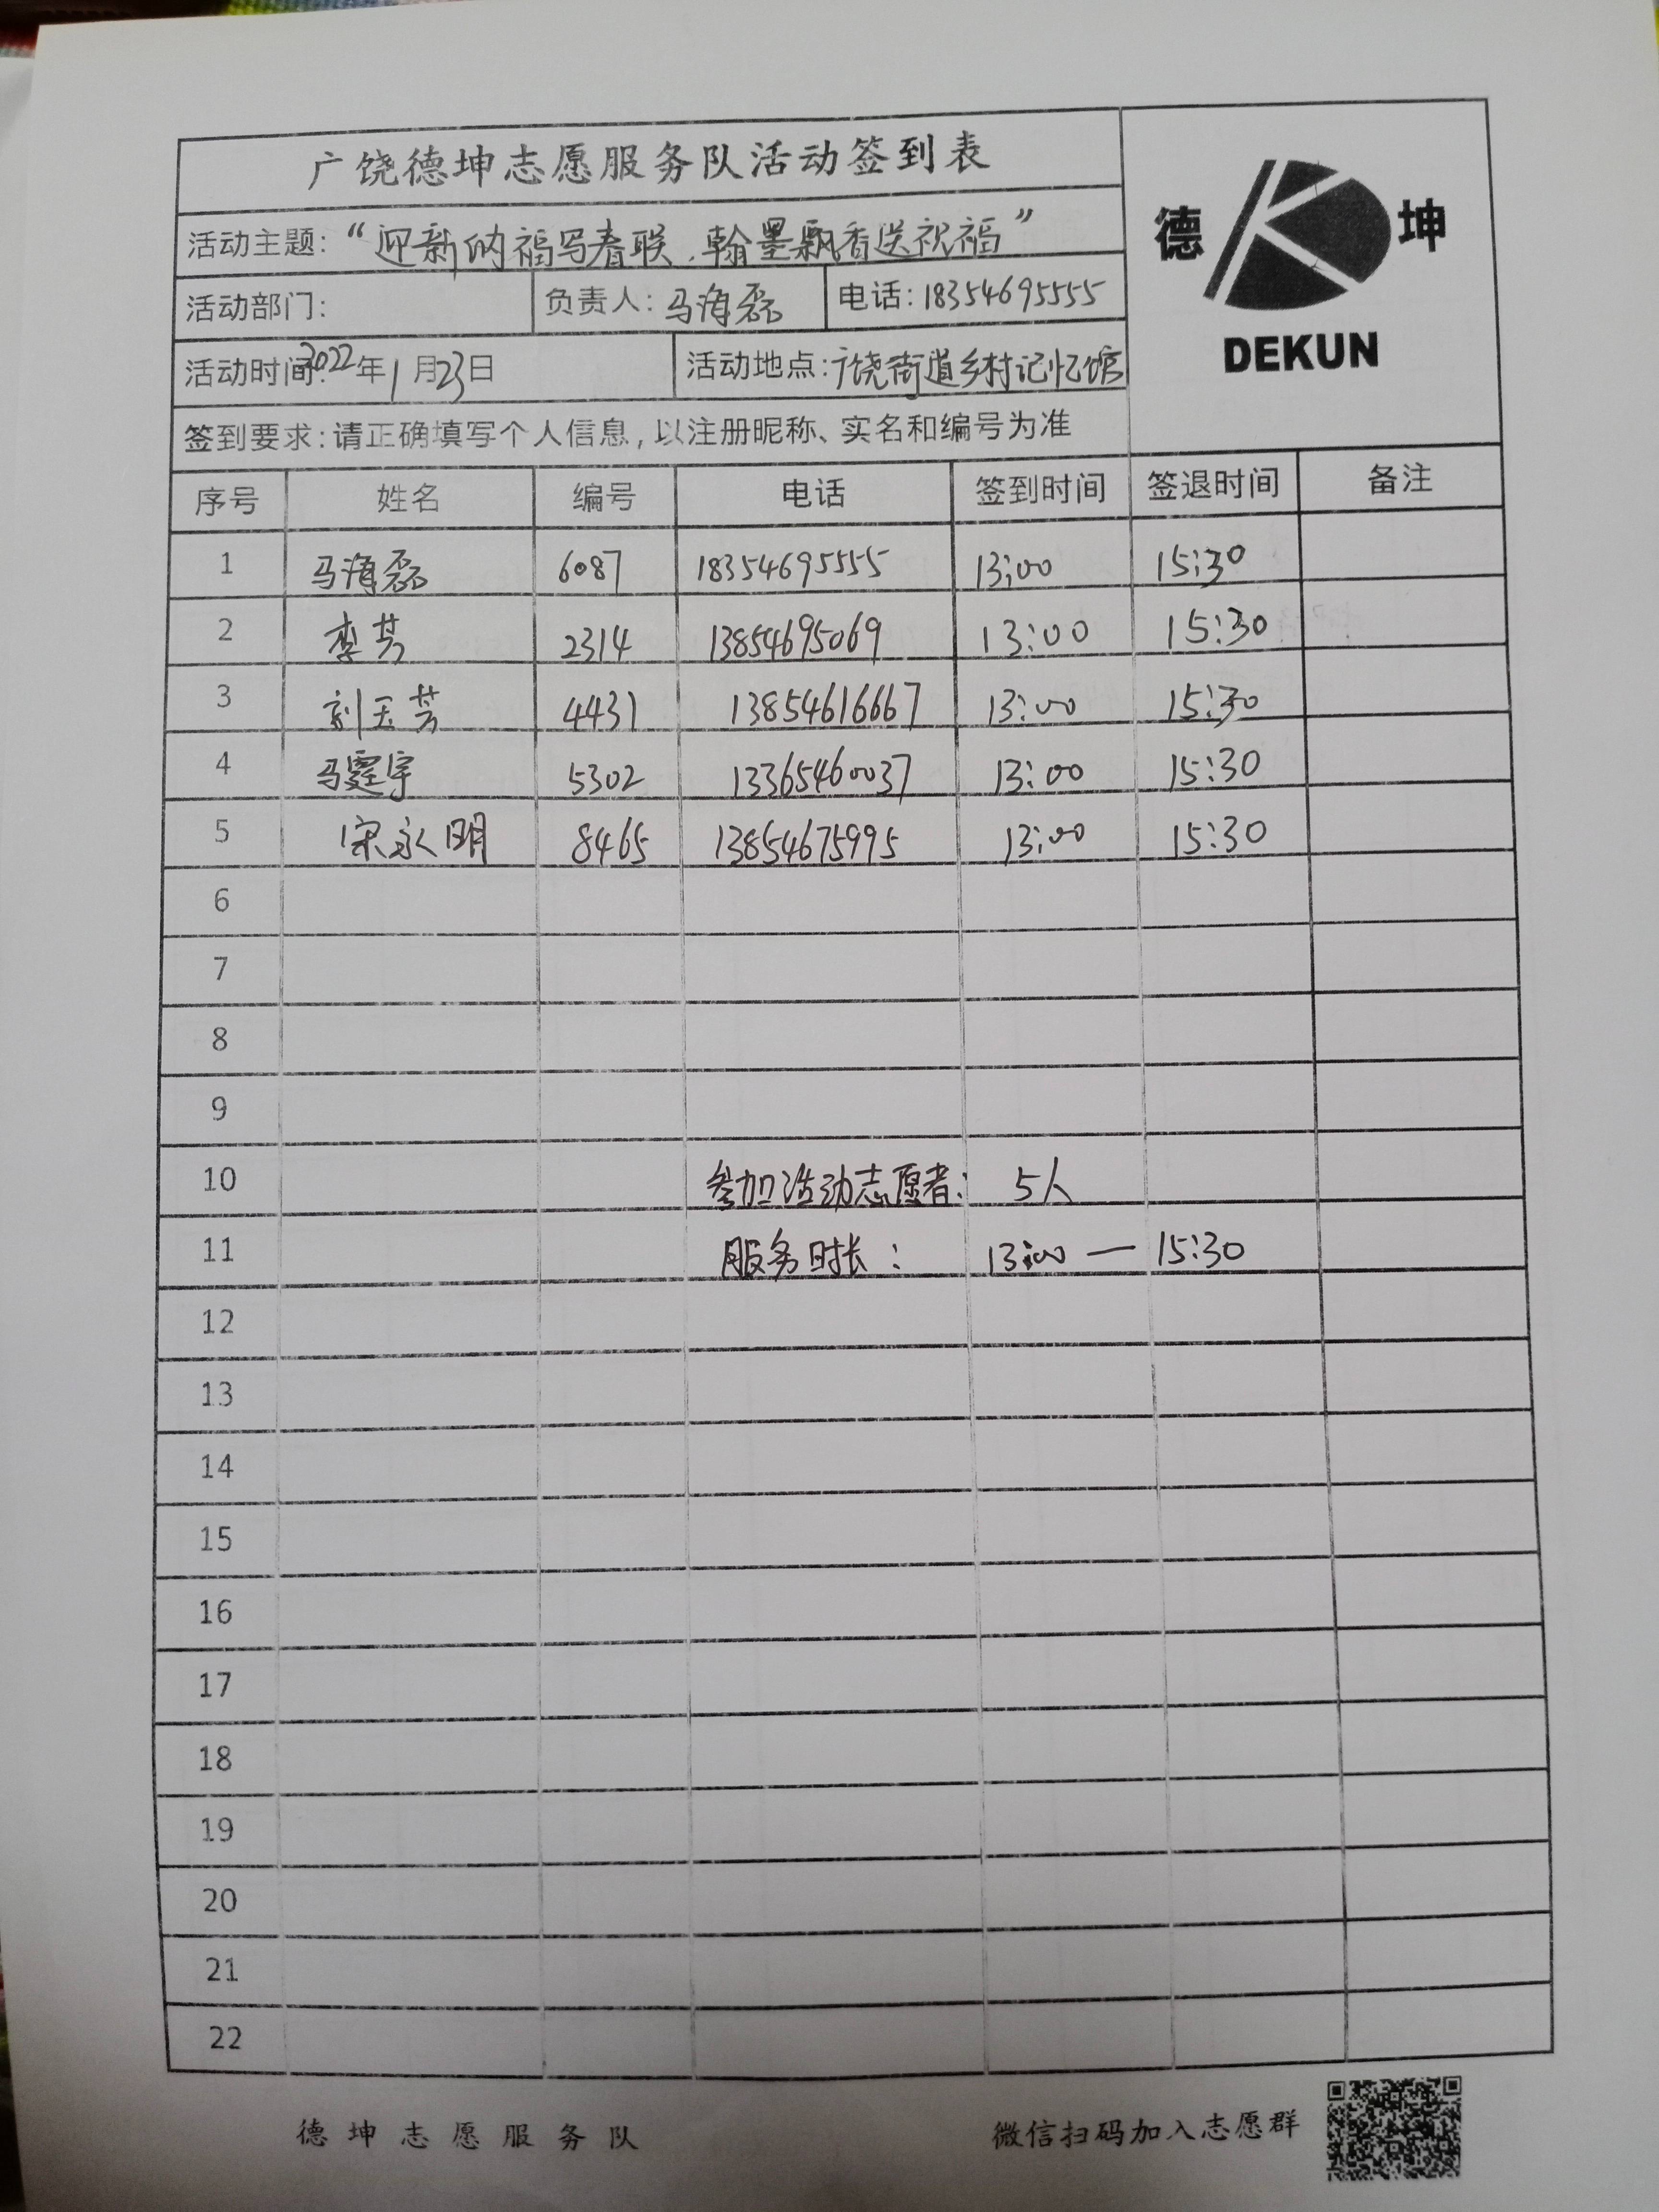 广饶德坤志愿服务队活动签到表
德 坤
DEKUN
活动主题：“迎新纳福写春联，翰墨飘香送祝福”
活动部门： 负责人：马海磊 电话：18354695555
活动时间：2022年1月23日 活动地点：广饶街道乡村记忆馆
签到要求：请正确填写个人信息，以注册昵称、实名和编号为准
序号 姓名 编号 电话 签到时间 签退时间 备注
1 马海磊 6087 18354695555 13:00 15:30
2 李芳 2314 13854695069 13:00 15:30
3 刘玉芳 4431 13854616667 13:00 15:30
4 马霆宇 5302 13365460037 13:00 15:30
5 宋永明 8465 13854675995 13:00 15:30
6
7
8
9
10 参加活动志愿者：5人
11 服务时长：13:00 — 15:30
12
13
14
15
16
17
18
19
20
21
22
德坤志愿服务队 微信扫码加入志愿群